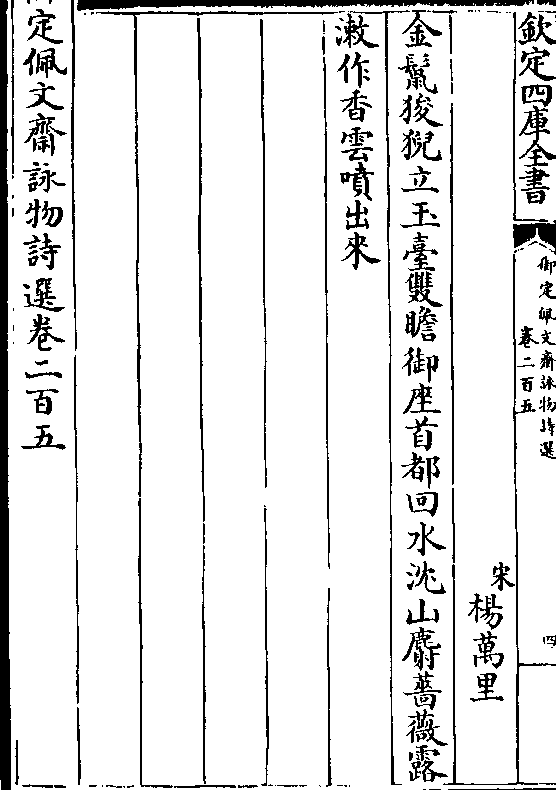 欽定四庫全書
御定佩文齋詠物詩選
卷二百五
四
宋楊萬里
金鬣狻猊立玉臺雙瞻御座首都回水沈山麝薔薇露
漱作香雲噴出來
定佩文齋詠物詩選卷二百五